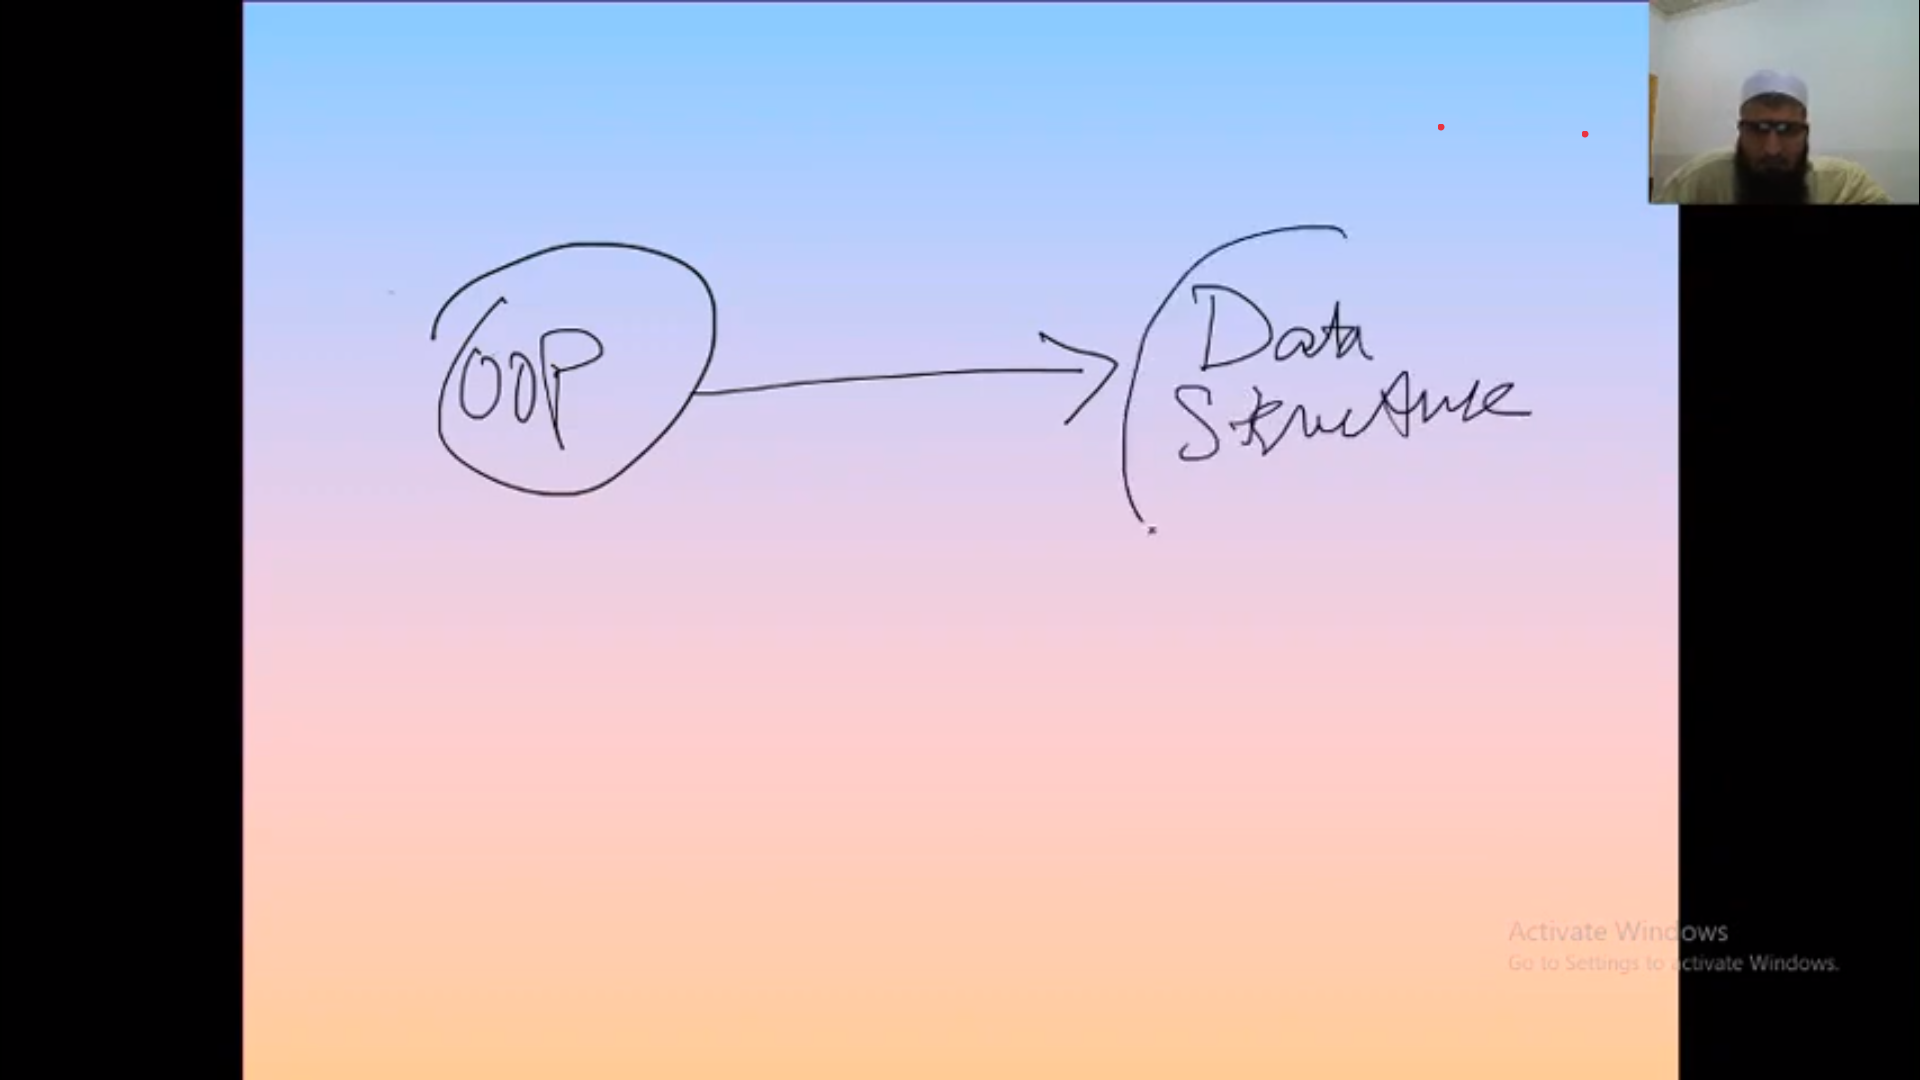 OOP
Data
Structure
Activate Windows
Go to Settings to activate Windows.